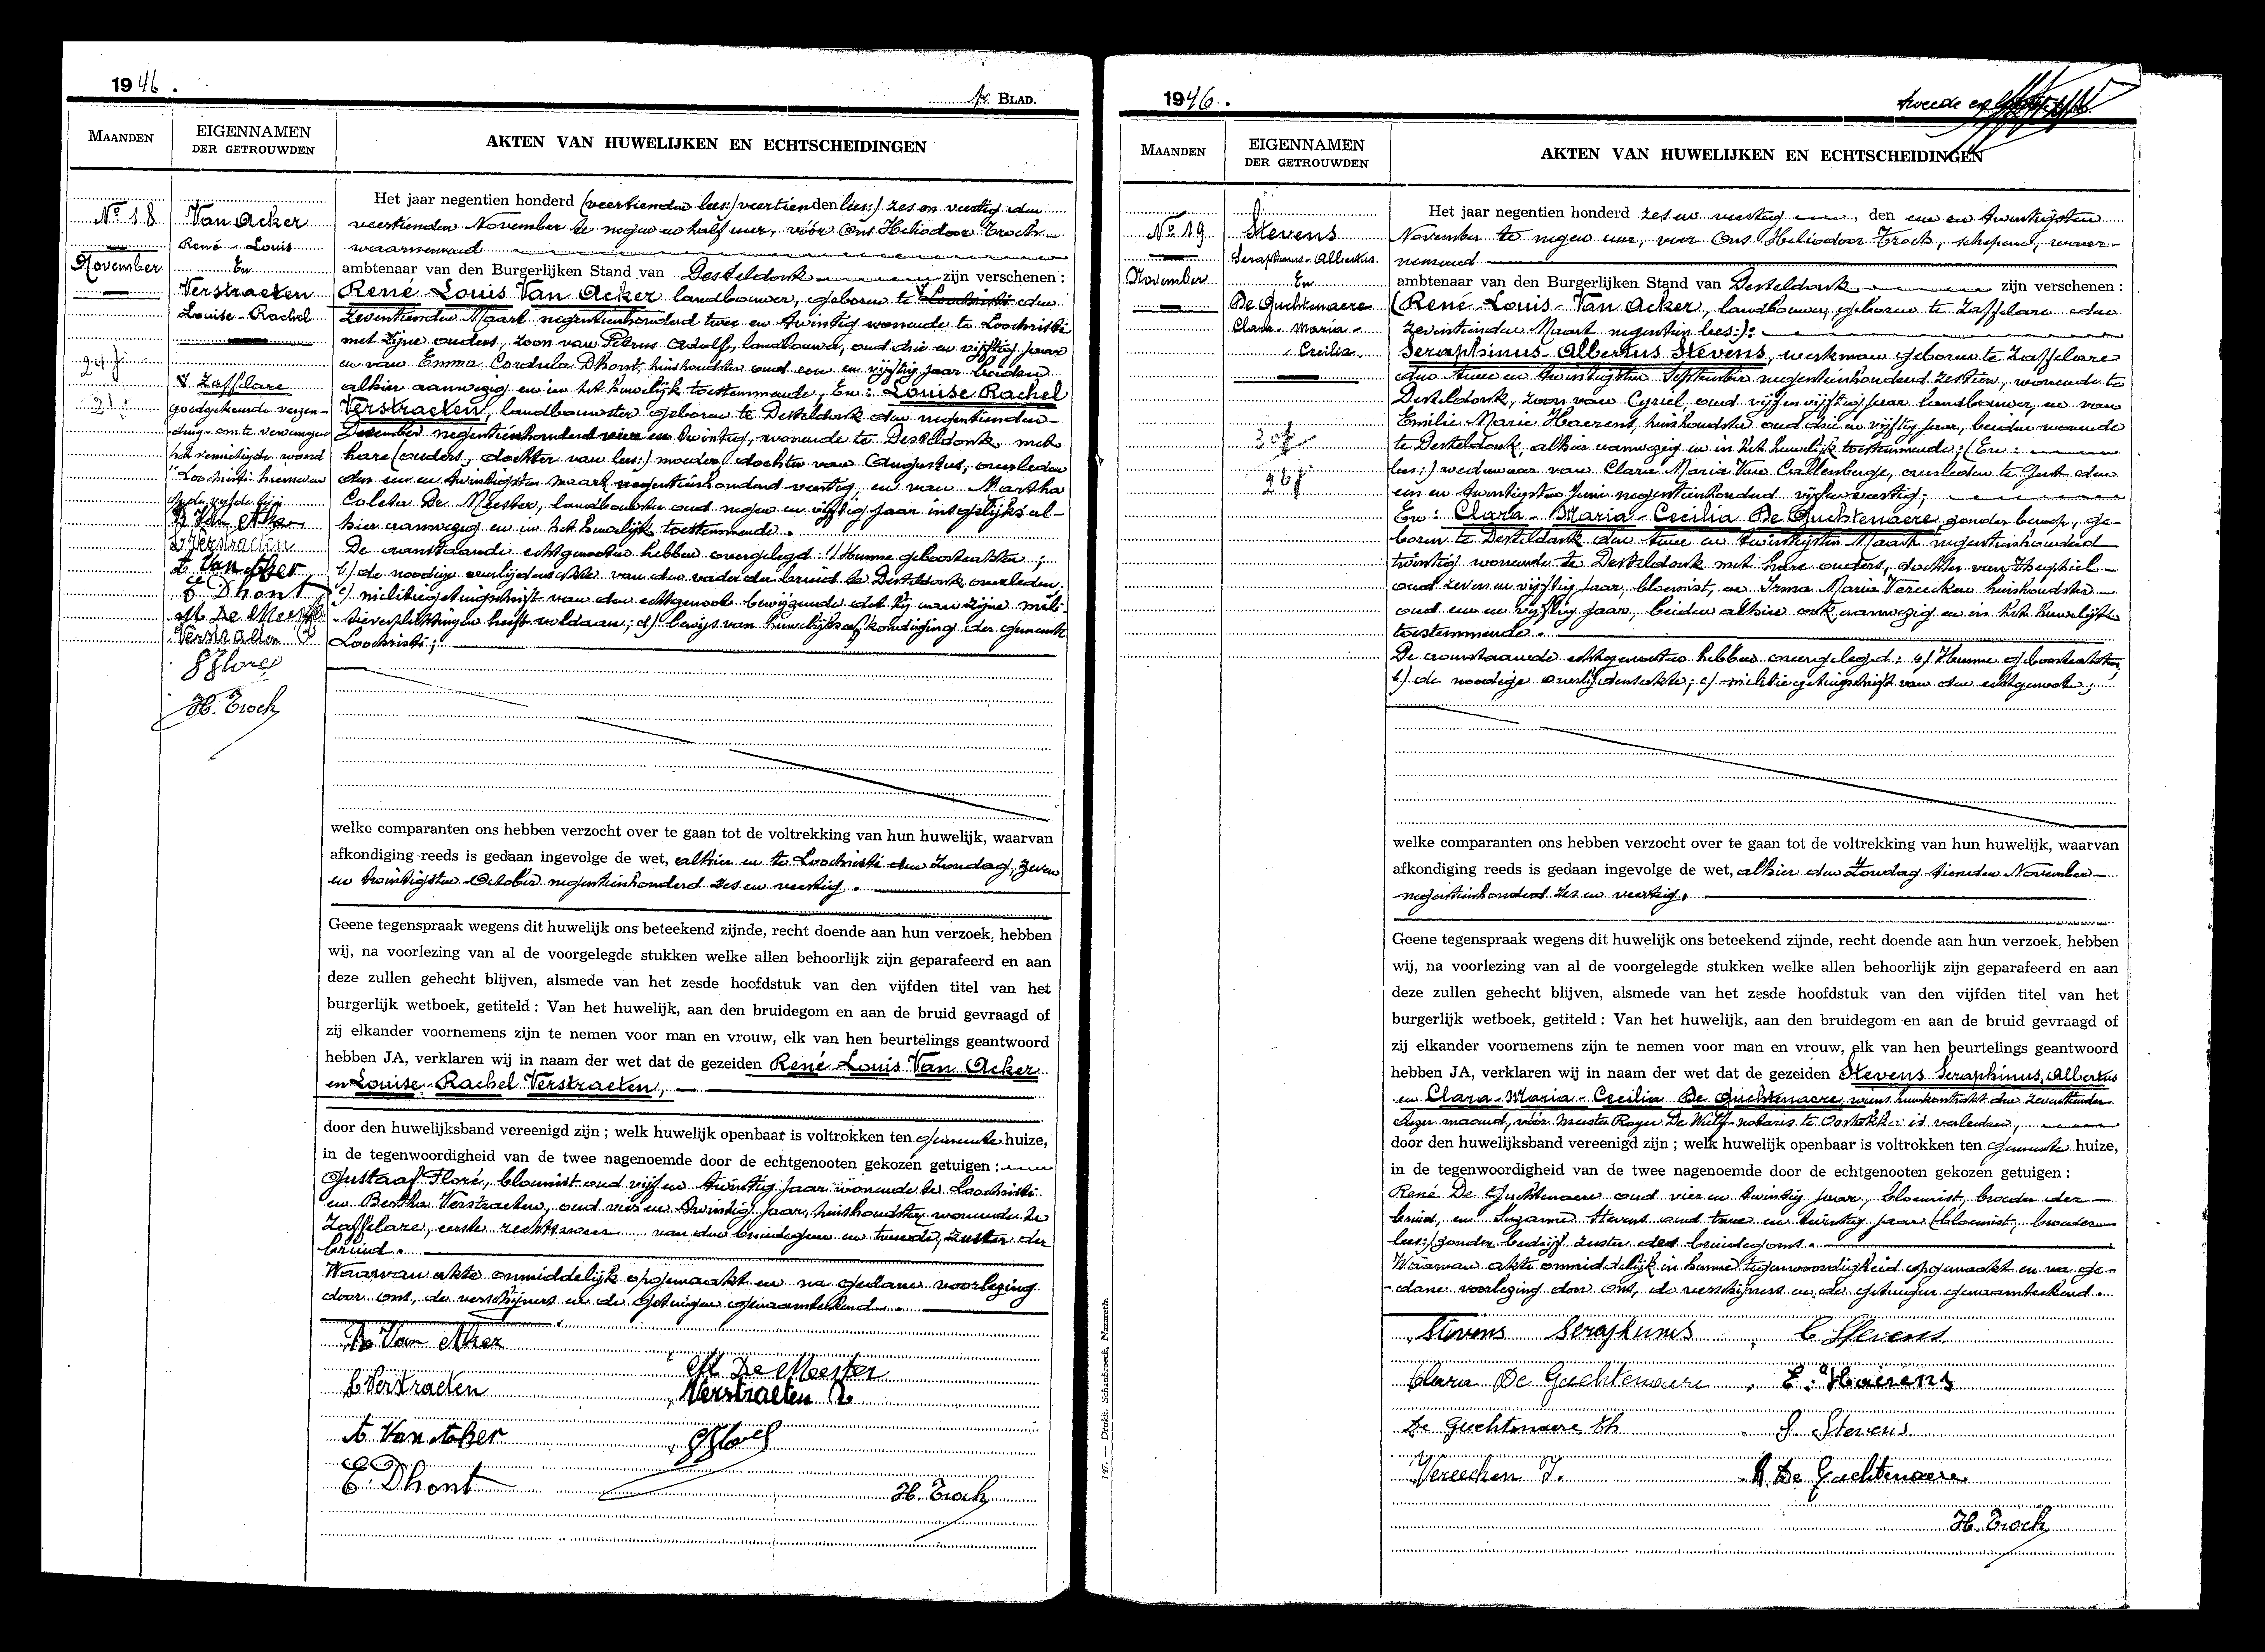 1946.
1e BLAD.
MAANDEN
EIGENNAMEN
DER GETROUWDEN
AKTEN VAN HUWELIJKEN EN ECHTSCHEIDINGEN
No 18
November
24 j
21 j
Van Acker
René-Louis
En
Verstraeten
Louise-Rachel
V Zaffelare
goedgekeurde verzen-
ding om te vervangen
het vernietigde woord
"Loochristi" hierneven
in de vijfde lijn
R Van Aker
L Verstraeten
A Van Aker
E Dhont
M De Meester
Verstraeten B
G Floré
H. Troch
Het jaar negentien honderd (veertienden lees:) veertienden lees:) zes en veertig den
veertienden November te negen en half uur, vóór Ons Heliodoor Troch
waarnemend
ambtenaar van den Burgerlijken Stand van Desteldonk zijn verschenen :
René-Louis Van Acker landbouwer, geboren te V Loochristi den
zeventienden Maart negentienhonderd twee en twintig wonende te Loochristi
met zijne ouders, zoon van Petrus Adolf, landbouwer, oud drie en vijftig jaar
en van Emma Cordula Dhont, huishoudster oud een en vijftig jaar beiden
alhier aanwezig en in het huwelijk toestemmende, En: Louise Rachel
Verstraeten, landbouwster geboren te Desteldonk den negentienden
December negentienhonderd vier en twintig, wonende te Desteldonk met
hare (ouders, dochter van lees:) moeder dochter van Augustus, overleden
den een en twintigsten maart negentienhonderd veertig en van Martha
Coleta De Meester, landbouwster oud negen en vijftig jaar insgelijks al-
hier aanwezig en in het huwelijk toestemmende.
De aanstaande echtgenooten hebben overgelegd: a) Hunne geboorteakten;
b) de noodige overlijdensakte van den vader der bruid te Desteldonk overleden;
c) militiegetuigschrift van den echtgenoot bewijzende dat hij aan zijne mili-
tieverplichtingen heeft voldaan; d) bewijs van huwelijksafkondiging der gemeente
Loochristi;
welke comparanten ons hebben verzocht over te gaan tot de voltrekking van hun huwelijk, waarvan
afkondiging reeds is gedaan ingevolge de wet, alhier en te Loochristi den Zondag, zeven
en twintigsten October negentienhonderd zes en veertig.
Geene tegenspraak wegens dit huwelijk ons beteekend zijnde, recht doende aan hun verzoek, hebben
wij, na voorlezing van al de voorgelegde stukken welke allen behoorlijk zijn geparafeerd en aan
deze zullen gehecht blijven, alsmede van het zesde hoofdstuk van den vijfden titel van het
burgerlijk wetboek, getiteld : Van het huwelijk, aan den bruidegom en aan de bruid gevraagd of
zij elkander voornemens zijn te nemen voor man en vrouw, elk van hen beurtelings geantwoord
hebben JA, verklaren wij in naam der wet dat de gezeiden René-Louis Van Acker
en Louise-Rachel Verstraeten,
door den huwelijksband vereenigd zijn ; welk huwelijk openbaar is voltrokken ten gemeente huize,
in de tegenwoordigheid van de twee nagenoemde door de echtgenooten gekozen getuigen :
Gustaaf Floré, bloemist oud vijf en twintig jaar wonende te Loochristi
en Bertha Verstraeten, oud vier en twintig jaar, huishoudster wonende te
Zaffelare, eerste rechtsweer van den bruidegom en tweede, zuster der
bruid.
Waarvan akte onmiddelijk opgemaakt en na gedane voorlezing
door ons, de verschijners en de getuigen genaamteekend.
R Van Aker
L Verstraeten
A Van Aker
E. Dhont
M De Meester
Verstraeten B
G Floré
H. Troch
147. — Drukk. Schaubroeck, Nazareth.
1946.
tweede en
MAANDEN
EIGENNAMEN
DER GETROUWDEN
AKTEN VAN HUWELIJKEN EN ECHTSCHEIDINGEN
No 19
November
Stevens
Seraphinus-Albertus
En
De Guchtenaere
Clara-Maria-
Cecilia.
30 j
26 j
Het jaar negentien honderd zes en veertig, den een en twintigsten
November te negen uur, voor Ons Heliodoor Troch, schepene, waar-
nemend
ambtenaar van den Burgerlijken Stand van Desteldonk zijn verschenen :
(René-Louis-Van Acker, landbouwer, geboren te Zaffelare den
zeventienden Maart negentien lees:):
Seraphinus-Albertus Stevens, werkman geboren te Zaffelare
den twee en twintigsten September negentienhonderd zestien, wonende te
Desteldonk, zoon van Cyriel oud vijf en vijftig jaar landbouwer, en van
Emilie Marie Haerens, huishoudster oud drie en vijftig jaar, beiden wonende
te Desteldonk, alhier aanwezig en in het huwelijk toestemmende; (En:
lees:) weduwnaar van Clara Maria Van Crattenberge, overleden te Gent den
een en twintigsten Juni negentienhonderd vijf en veertig;
En: Clara-Maria-Cecilia De Guchtenaere zonder beroep, ge-
boren te Desteldonk den twee en twintigsten Maart negentienhonderd
twintig wonende te Desteldonk met hare ouders, dochter van Theophiel
oud zeven en vijftig jaar, bloemist, en Irma Marie Vereecken huishoudster
oud een en vijftig jaar, beiden alhier ook aanwezig en in het huwelijk
toestemmende.
De aanstaande echtgenooten hebben overgelegd: a) Hunne geboorteakten,
b) de noodige overlijdensakte; c) militiegetuigschrift van den echtgenoot;
welke comparanten ons hebben verzocht over te gaan tot de voltrekking van hun huwelijk, waarvan
afkondiging reeds is gedaan ingevolge de wet, alhier den Zondag tienden November
negentienhonderd zes en veertig.
Geene tegenspraak wegens dit huwelijk ons beteekend zijnde, recht doende aan hun verzoek, hebben
wij, na voorlezing van al de voorgelegde stukken welke allen behoorlijk zijn geparafeerd en aan
deze zullen gehecht blijven, alsmede van het zesde hoofdstuk van den vijfden titel van het
burgerlijk wetboek, getiteld : Van het huwelijk, aan den bruidegom en aan de bruid gevraagd of
zij elkander voornemens zijn te nemen voor man en vrouw, elk van hen beurtelings geantwoord
hebben JA, verklaren wij in naam der wet dat de gezeiden Stevens Seraphinus, Albertus
en Clara-Maria-Cecilia De Guchtenaere, wiens huwkontrakt den zeventienden
dezer maand, vóór meester Roger De Wulf notaris te Oostakker is verleden,
door den huwelijksband vereenigd zijn ; welk huwelijk openbaar is voltrokken ten gemeente huize,
in de tegenwoordigheid van de twee nagenoemde door de echtgenooten gekozen getuigen :
René De Guchtenaere oud vier en twintig jaar, bloemist, broeder der
bruid, en Suzanne Stevens oud twee en twintig jaar (bloemist, broeder
lees:) zonder bedrijf zuster des bruidegoms.
Waarvan akte onmiddelijk in hunne tegenwoordigheid opgemaakt en na ge-
dane voorlezing door ons, de verschijners en de getuigen genaamteekend.
Stevens Seraphinus
C Stevens
Clara De Guchtenaere
E. Haerens
De Guchtenaere Th
S Stevens
Vereecken I.
R De Guchtenaere
H. Troch